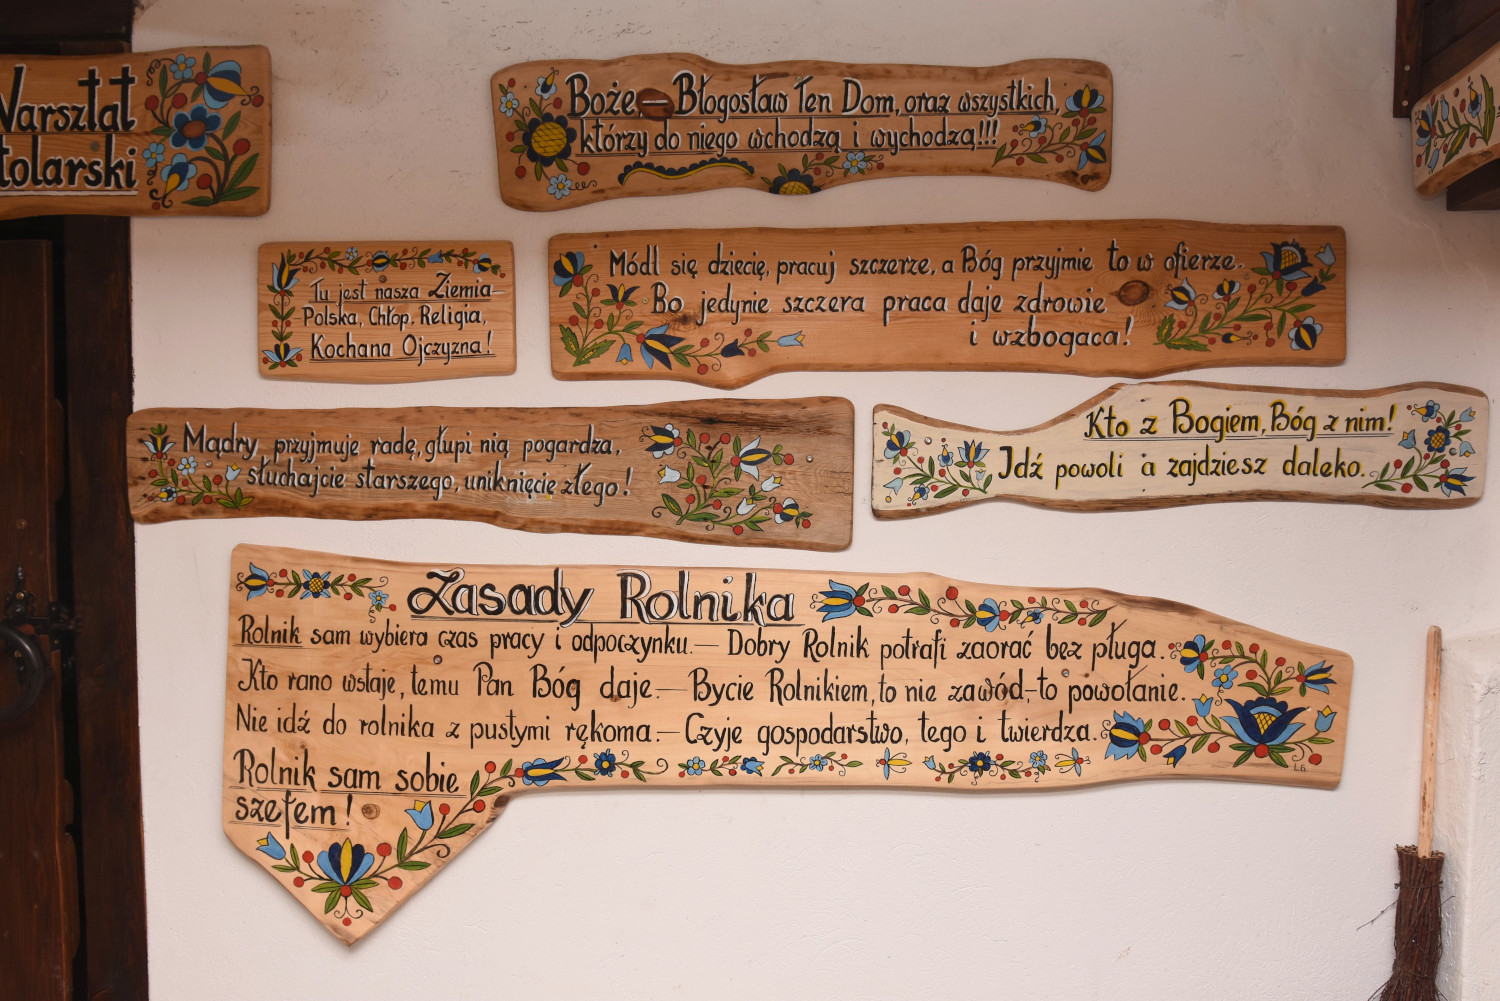 Warsztat
Stolarski
Boże, – Błogosław Ten Dom, oraz wszystkich,
którzy do niego wchodzą i wychodzą!!!
Tu jest nasza Ziemia
Polska, Chłop, Religia,
Kochana Ojczyzna!
Módl się dziecię, pracuj szczerze, a Bóg przyjmie to w ofierze.
Bo jedynie szczera praca daje zdrowie
i wzbogaca!
Mądry przyjmuje radę, głupi nią pogardza,
słuchajcie starszego, uniknięcie złego!
Kto z Bogiem, Bóg z nim!
Idź powoli a zajdziesz daleko.
Zasady Rolnika
Rolnik sam wybiera czas pracy i odpoczynku. — Dobry Rolnik potrafi zaorać bez pługa.
Kto rano wstaje, temu Pan Bóg daje. — Bycie Rolnikiem, to nie zawód – to powołanie.
Nie idź do rolnika z pustymi rękoma. — Czyje gospodarstwo, tego i twierdza.
Rolnik sam sobie
szefem!